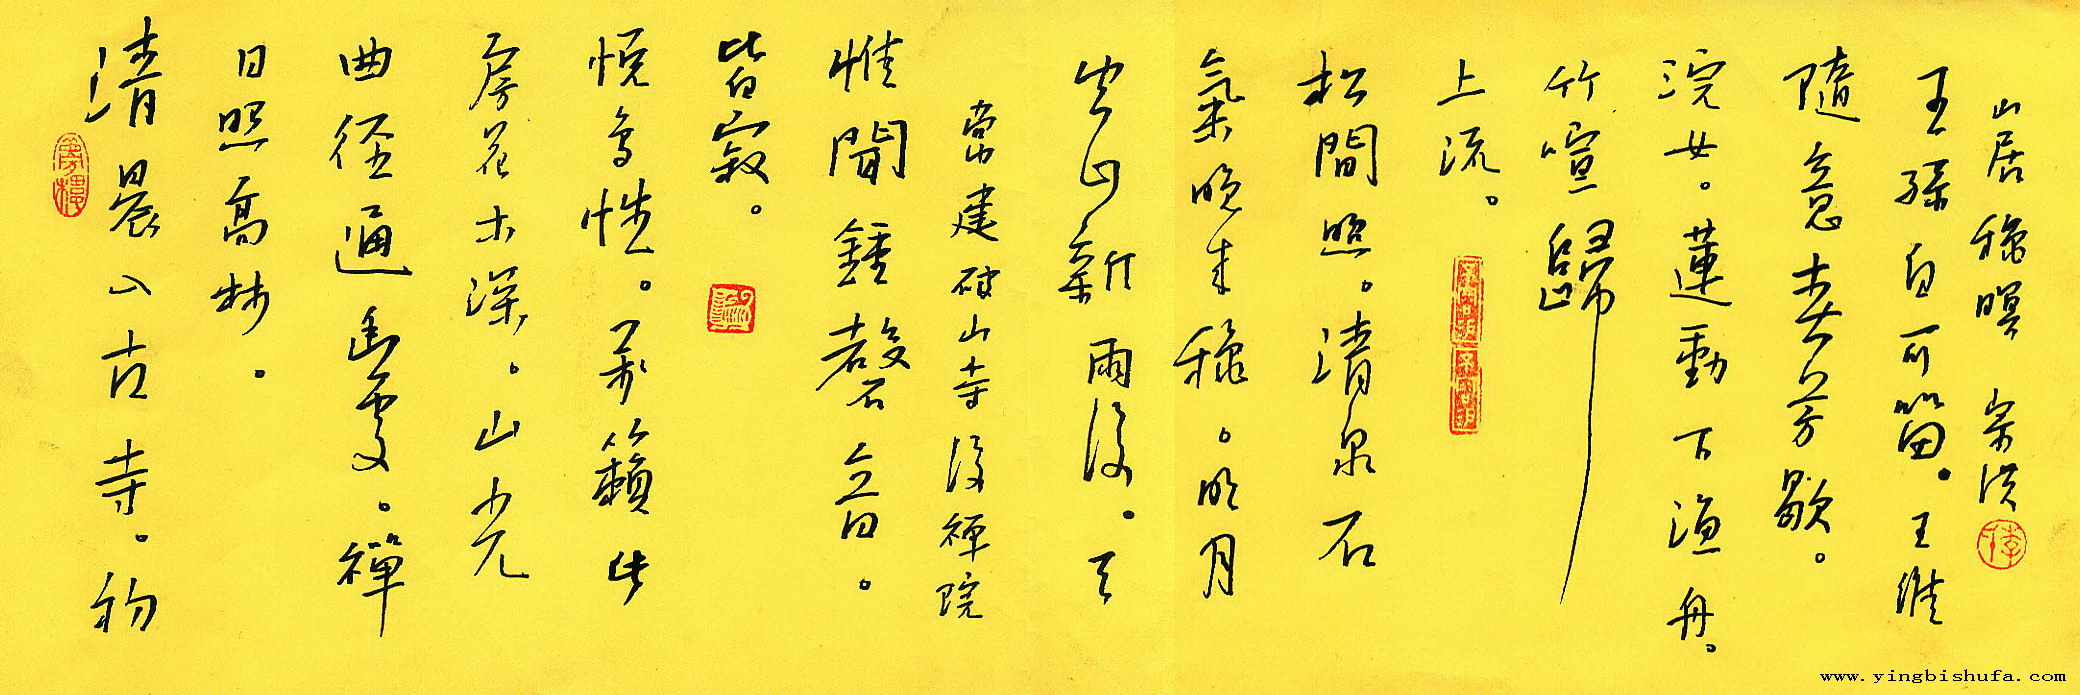 清晨入古寺。初
日照高林。
曲径通幽處。禪
房花木深。山光
悦鳥性。萬籟此
皆寂。
惟聞鍾磬音。
常建破山寺後禅院
空山新雨後。天
氣晚来穐。明月
松間照。清泉石
上流。
竹喧歸
浣女。蓮動下漁舟。
隨意春芳歇。
王孫自可留。王維
山居穐暝 宗洪
www.yingbishufa.com